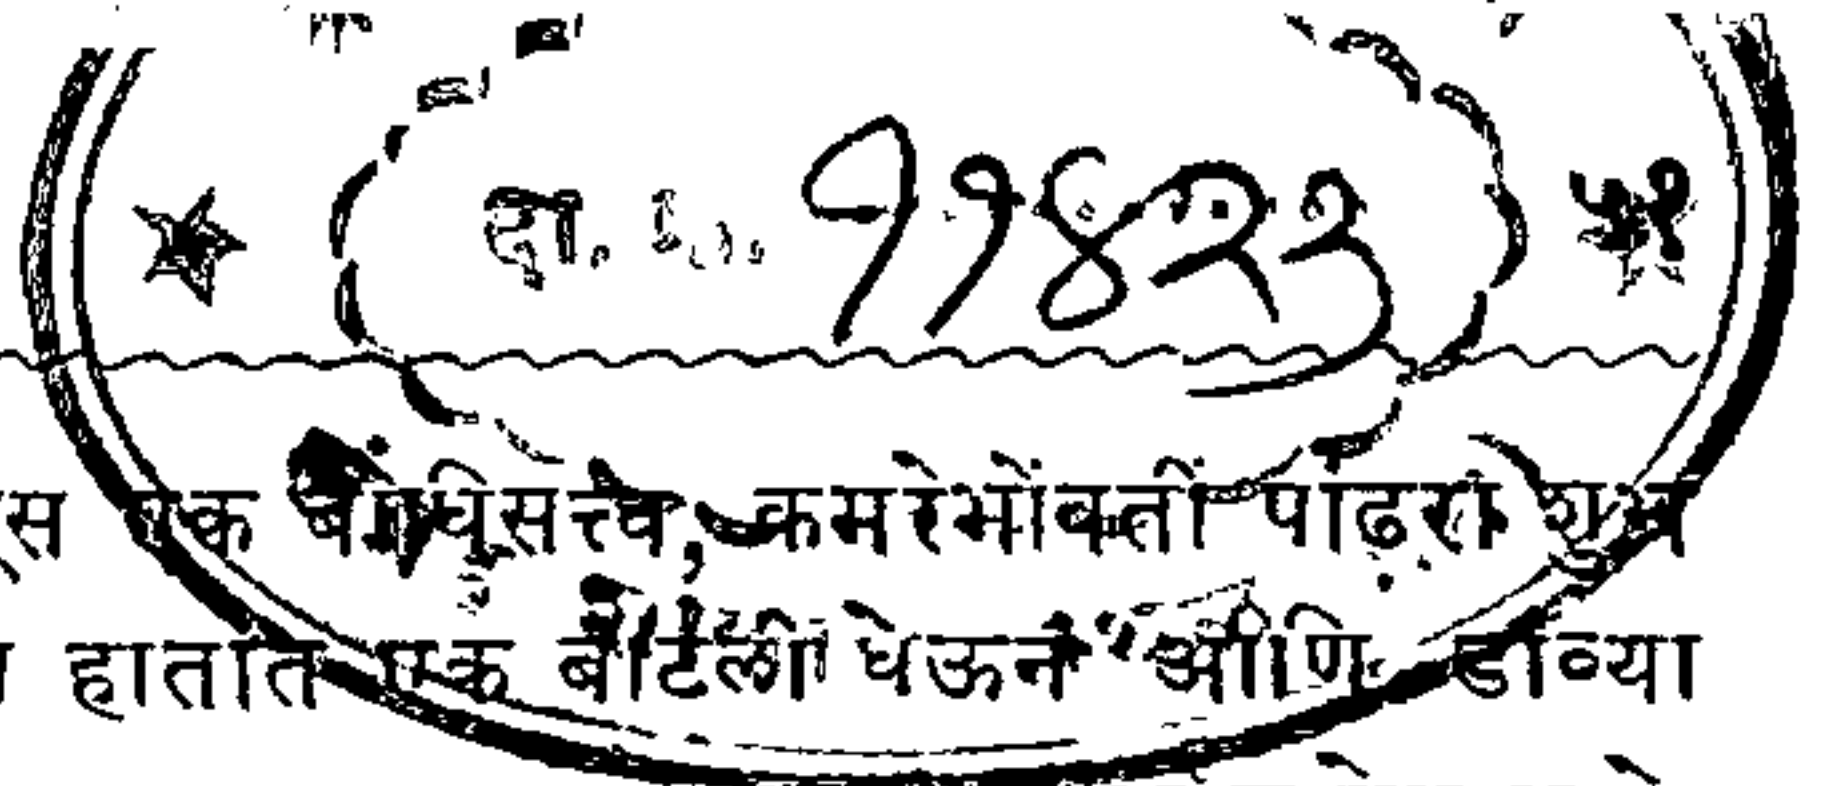 दा. ११४२३ ५१
स एक बोधिसत्त्व, कमरेभोंवतीं पांढरा शुभ्र
हातांत एक बाटली घेऊन आणि डाव्या